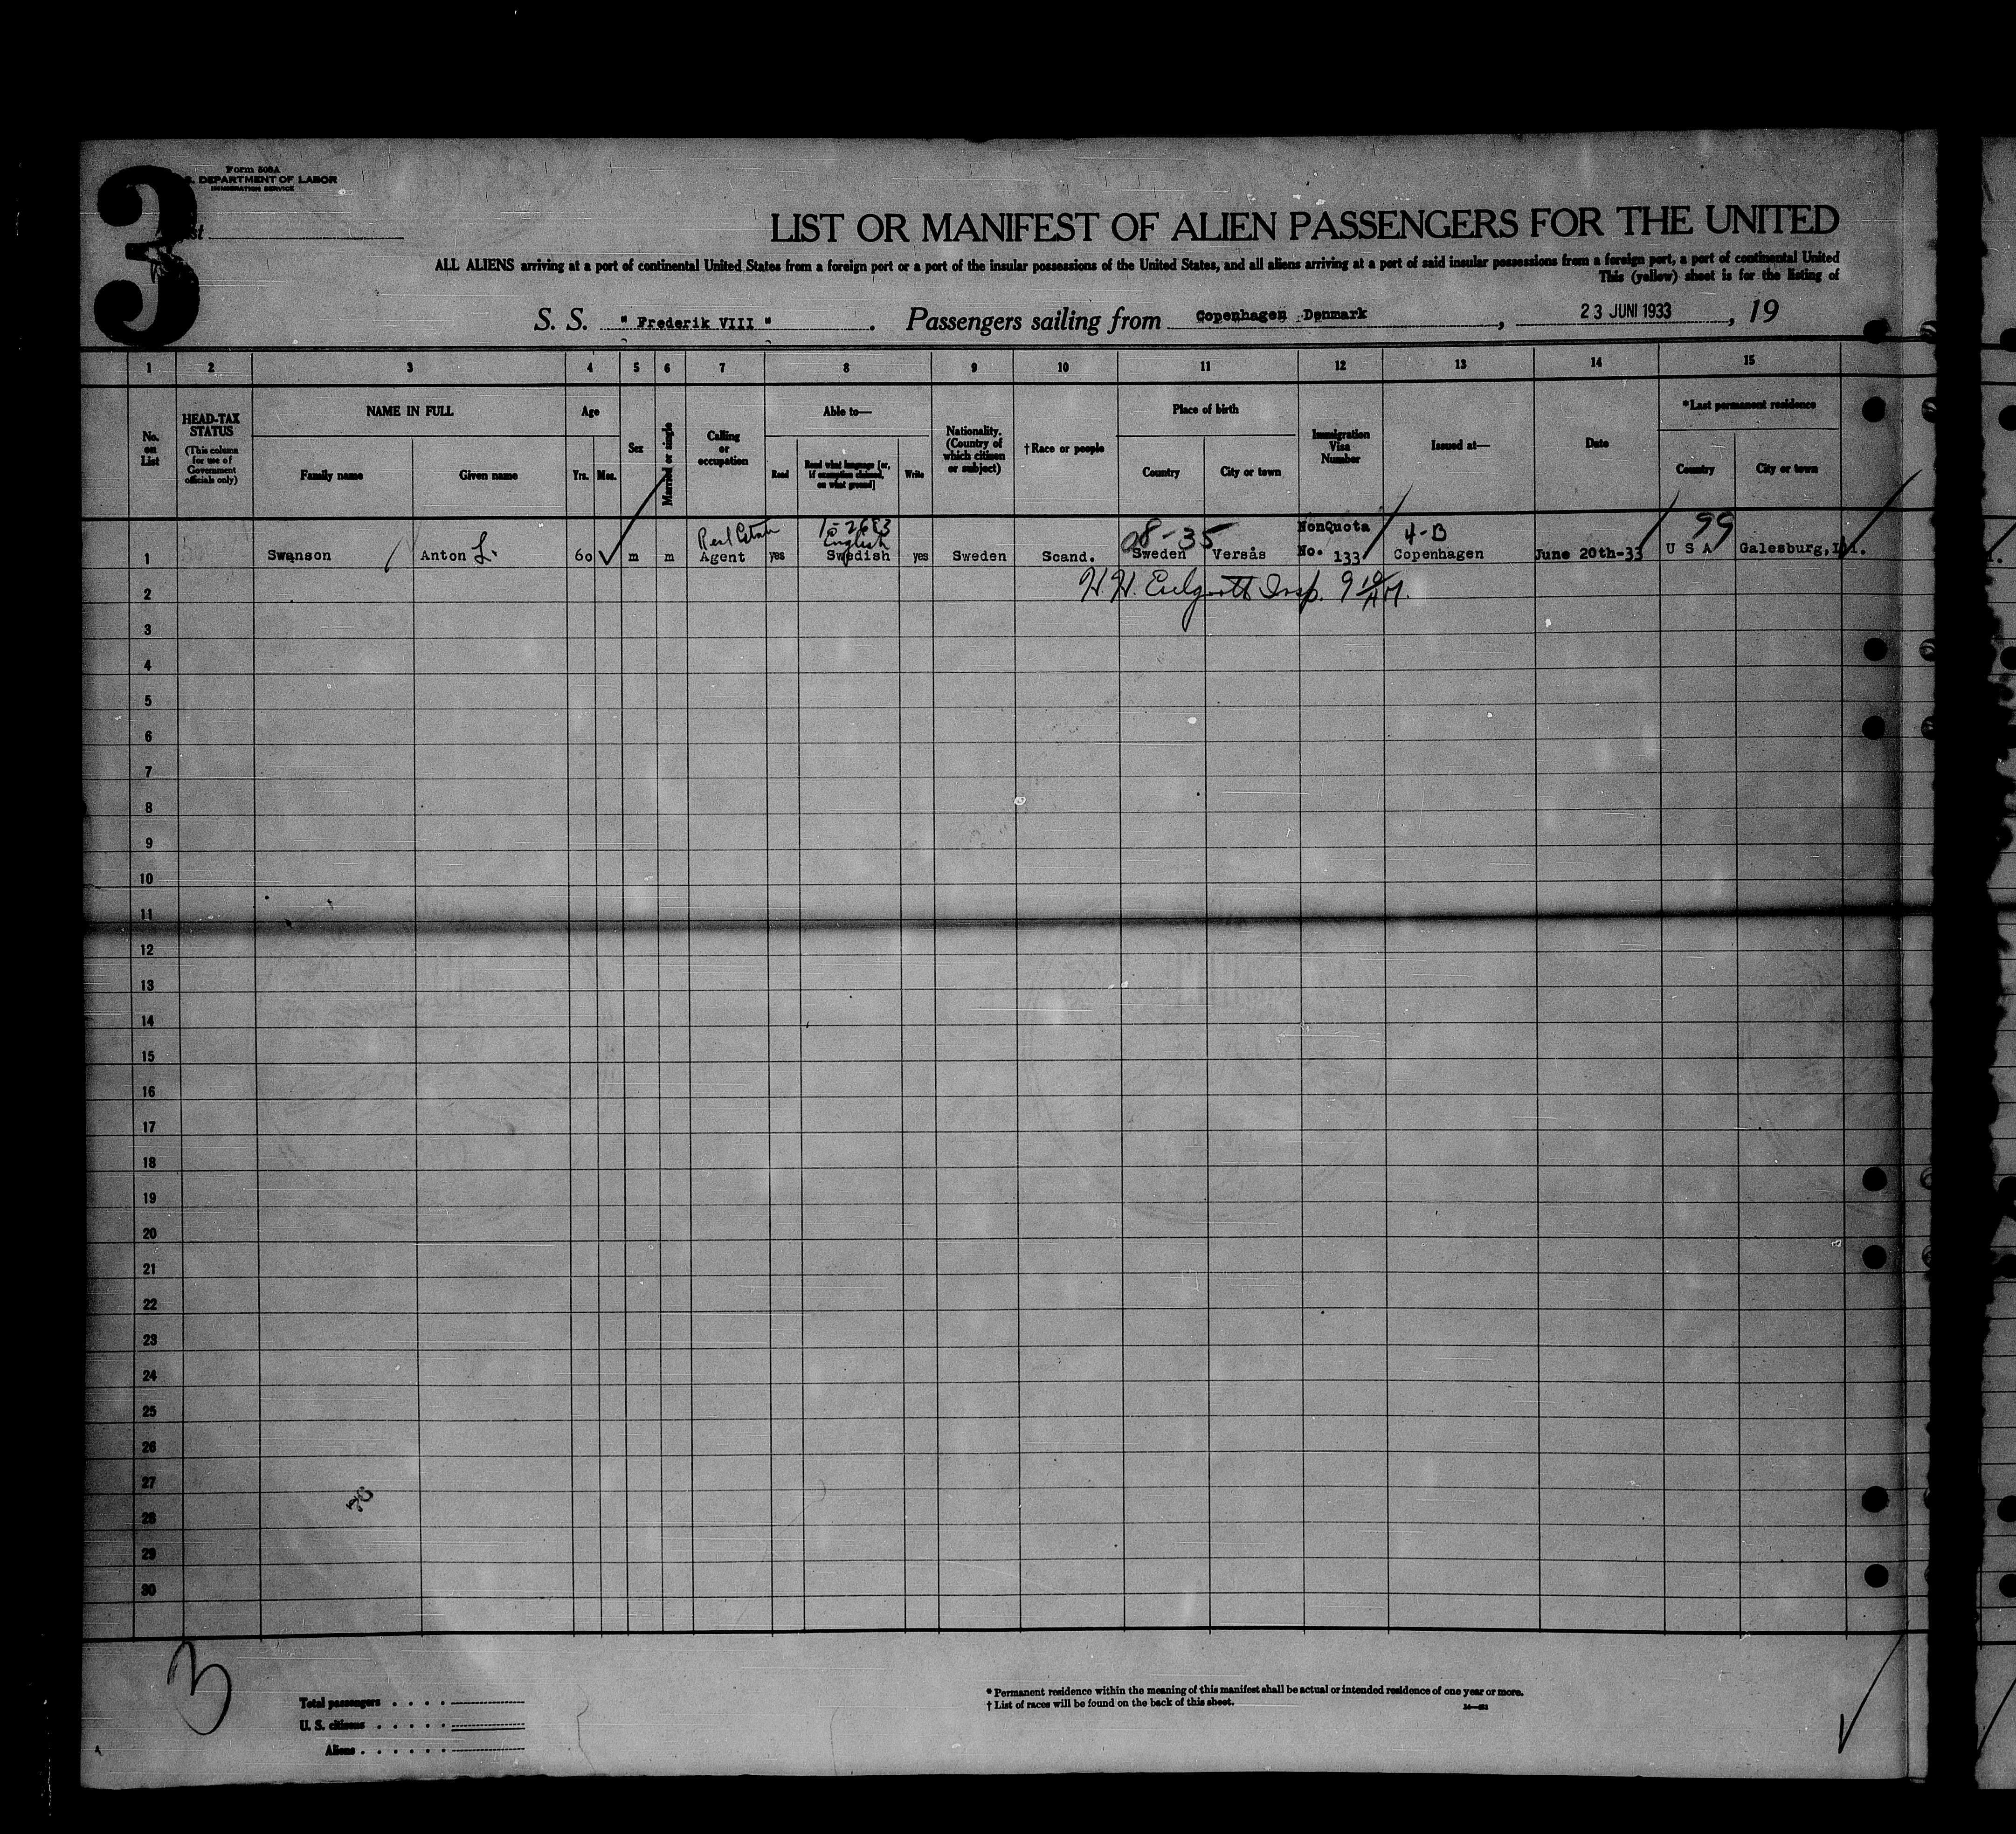 3
Form 500A
DEPARTMENT OF LABOR
IMMIGRATION SERVICE
LIST OR MANIFEST OF ALIEN PASSENGERS FOR THE UNITED
ALL ALIENS arriving at a port of continental United States from a foreign port or a port of the insular possessions of the United States, and all aliens arriving at a port of said insular possessions from a foreign port, a port of continental United
This (yellow) sheet is for the listing of
S. S. "Frederik VIII". Passengers sailing from Copenhagen Denmark, 23 JUNI 1933, 19
1 2 3 4 5 6 7 8 9 10 11 12 13 14 15
No. on List
HEAD-TAX STATUS
(This column for use of Government officials only)
NAME IN FULL
Family name Given name
Age
Yrs. Mos.
Sex
Married or single
Calling or occupation
Able to—
Read Read what language [or, if exemption claimed, on what ground] Write
Nationality. (Country of which citizen or subject)
†Race or people
Place of birth
Country City or town
Immigration Visa Number
Issued at—
Date
*Last permanent residence
Country City or town
Real Estate 1-2683 English 08-35 NonQuota 4-B 99
1 Swanson Anton L. 60 m m Agent yes Swedish yes Sweden Scand. Sweden Versås No. 133 Copenhagen June 20th-33 U S A Galesburg, Ill.
2 H. H. Insp. 9 10 AM.
3
4
5
6
7
8
9
10
11
12
13
14
15
16
17
18
19
20
21
22
23
24
25
26
27
28
29
30
3
Total passengers
U. S. citizens
Aliens
* Permanent residence within the meaning of this manifest shall be actual or intended residence of one year or more.
† List of races will be found on the back of this sheet.